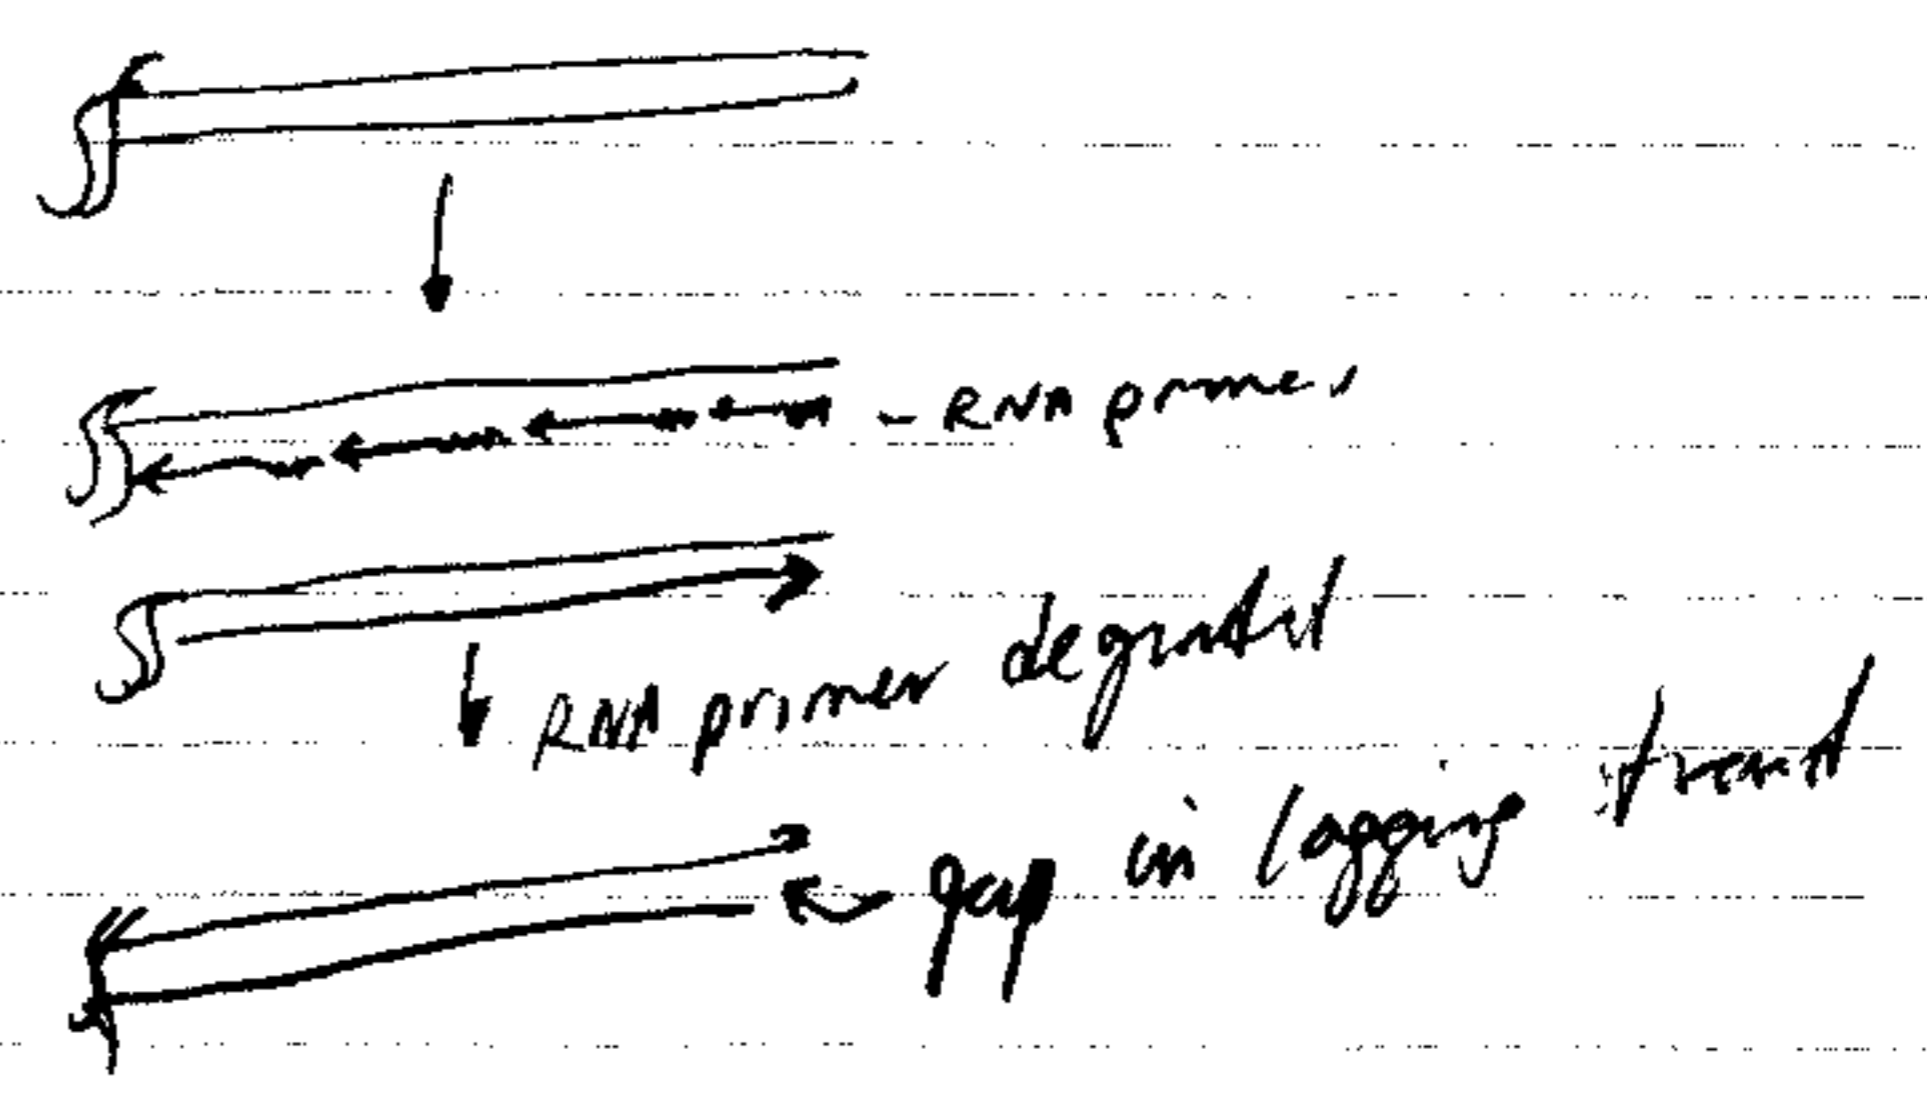 - RNA primer
RNA primer degraded
gap in lagging strand